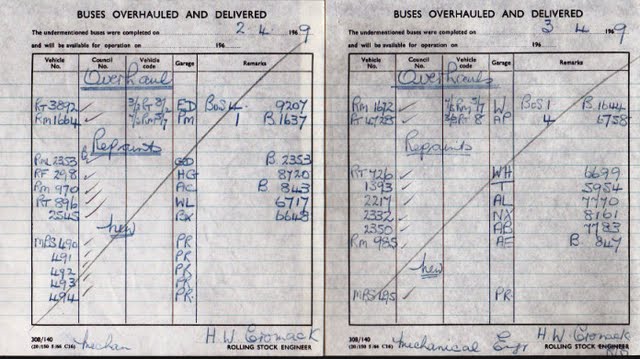 BUSES OVERHAULED AND DELIVERED
The undermentioned buses were completed on 2-4- 1969
and will be available for operation on 196
Vehicle No. Council No. Vehicle code Garage Remarks
Overhauls
RT 3892 ✓ ED 9207
RM 1664 ✓ PM 1 B.1637
Repaints
RML 2353 ✓ B. 2353
RF 298 ✓ HG 8720
RM 970 ✓ AC B. 843
RT 896 ✓ WL 6717
2545 ✓ 6648
New
MBS 490 ✓ PR
491 ✓ PR
492 ✓ PR
493 ✓ PR
494 ✓ PR.
308/140
Mechan H.W. Cromack
ROLLING STOCK ENGINEER
BUSES OVERHAULED AND DELIVERED
The undermentioned buses were completed on 3 4 1969
and will be available for operation on 196
Vehicle No. Council No. Vehicle code Garage Remarks
Overhauls
RM 1672 ✓ W BOS 1 B.1644
✓ AP 4 6758
Repaints
RT 726 ✓ WH 6699
1393 ✓ T 5954
2217 ✓ AL 7770
2332 ✓ NX 8161
2350 ✓ AB 7783
RM 985 ✓ B. 847
New
MBS 495 ✓ PR
308/140
Mechanical Engr H.W. Cromack
ROLLING STOCK ENGINEER